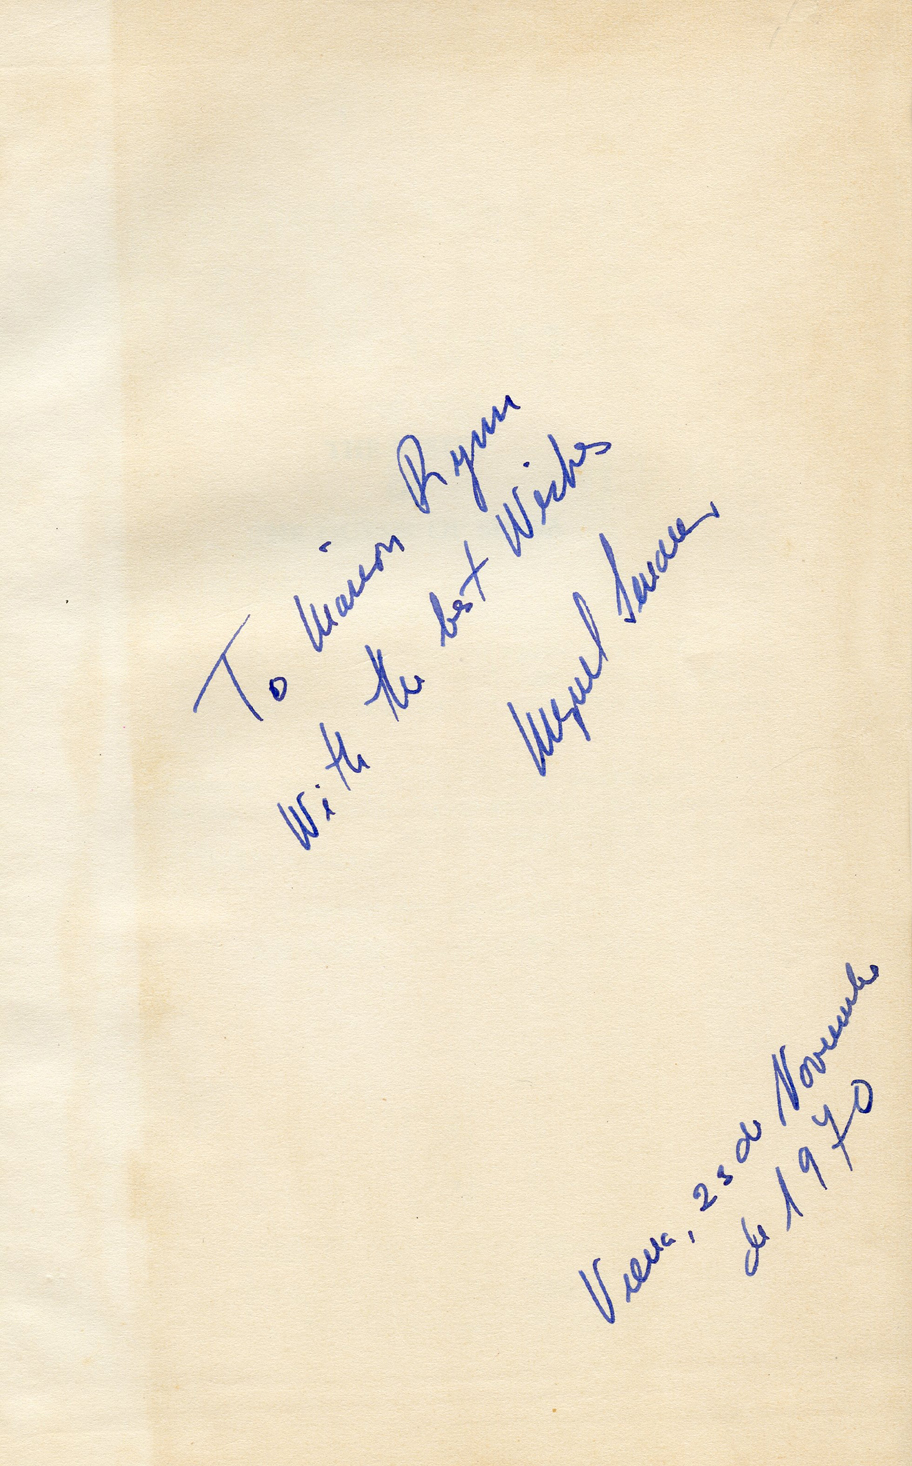 To Marion Rynn
With the best Wishes
Miguel Serrano
Viena, 23 de Noviembre
de 1970